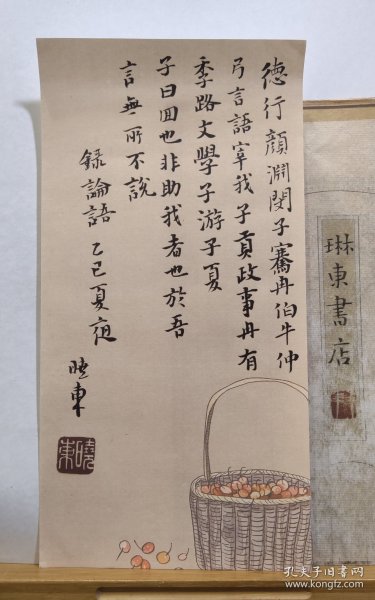 德行顏淵閔子騫冉伯牛仲
弓言語宰我子貢政事冉有
季路文學子游子夏
子曰回也非助我者也於吾
言無所不說
錄論語 乙巳夏夜
曉東
曉東
琳東書店
孔夫子旧书网
www.kongfz.com